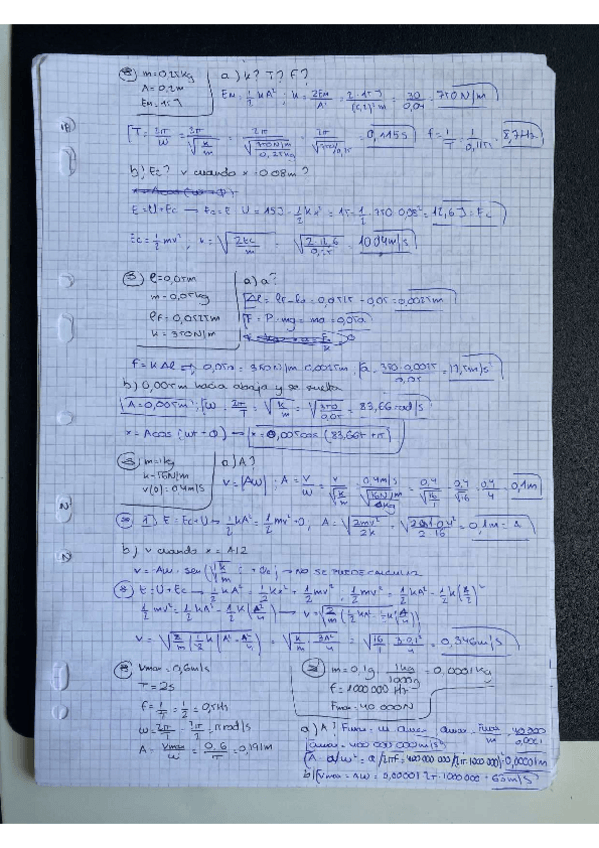 m=0,25kg
A=0,2m
EM=15J
a) k? T? f?
EM=1/2 kA²; k=2EM/A²=2·15J/(0,2)²m=30/0,04=750N/m
T=2π/ω=2π/√(k/m)=2π/√(750N/m/0,25kg)=2π/√(750/0,25)=0,115s f=1/T=1/0,115=8,7Hz
b) Ec? v cuando x=0,08m?
E=U+Ec → Ec=E-U=15J-1/2 kx²=15-1/2·750·0,08²=12,6J=Ec
Ec=1/2 mv², v=√(2Ec/m)=√(2·12,6/0,25)=10,04m/s
l=0,05m
m=0,05kg
lf=0,0525m
k=350N/m
a) a?
Δl=lf-l0=0,0525-0,05=0,0025m
F=P=mg=ma=0,05a
F=kΔl → 0,05a=350N/m·0,0025m, a=350·0,0025/0,05=17,5m/s
b) 0,005m hacia abajo y se suelta
A=0,005m, ω=2π/T=√(k/m)=√(350/0,05)=83,66rad/s
x=Acos(ωt+Φ) → x=0,005cos(83,66t+π)
m=1kg
k=16N/m
v(0)=0,4m/s
a) A?
v=|Aω|; A=v/ω=v/√(k/m)=0,4m/s/√(16N/m/1kg)=0,4/√(16/1)=0,4/√16=0,4/4=0,1m
E=Ec+U → 1/2 kA²=1/2 mv²+0, A=√(2mv²/2k)=0,1m=A
b) v cuando x=A/2
v=-Aω·sen → NO SE PUEDE CALCULAR
E=U+Ec → 1/2 kA²=1/2 kx²+1/2 mv², 1/2 mv²=1/2 kA²-1/2 k(A/2)²
1/2 mv²=1/2 kA²-1/2 k(A²/4) → v=√(2/m(1/2 kA²-1/2 k A²/4))
v=√(2/m(1/2 k(A²-A²/4)))=√(k/m·3A²/4)=√(16/1·3·0,1²/4)=0,346m/s
vmax=0,6m/s
T=2s
f=1/T=1/2=0,5Hz
ω=2π/T=2π/2=πrad/s
A=vmax/ω=0,6/π=0,191m
m=0,1g·1kg/1000g=0,0001kg
f=1000000Hz
Fmax=40000N
a) A? Fmax=m·amax, amax=Fmax/m=40000/0,0001
amax=400000000m/s²
A=a/ω²=a/2πf=400000000/(2π·1000000)=0,00001m
b) Vmax=Aω=0,00001·2π·1000000=63m/s